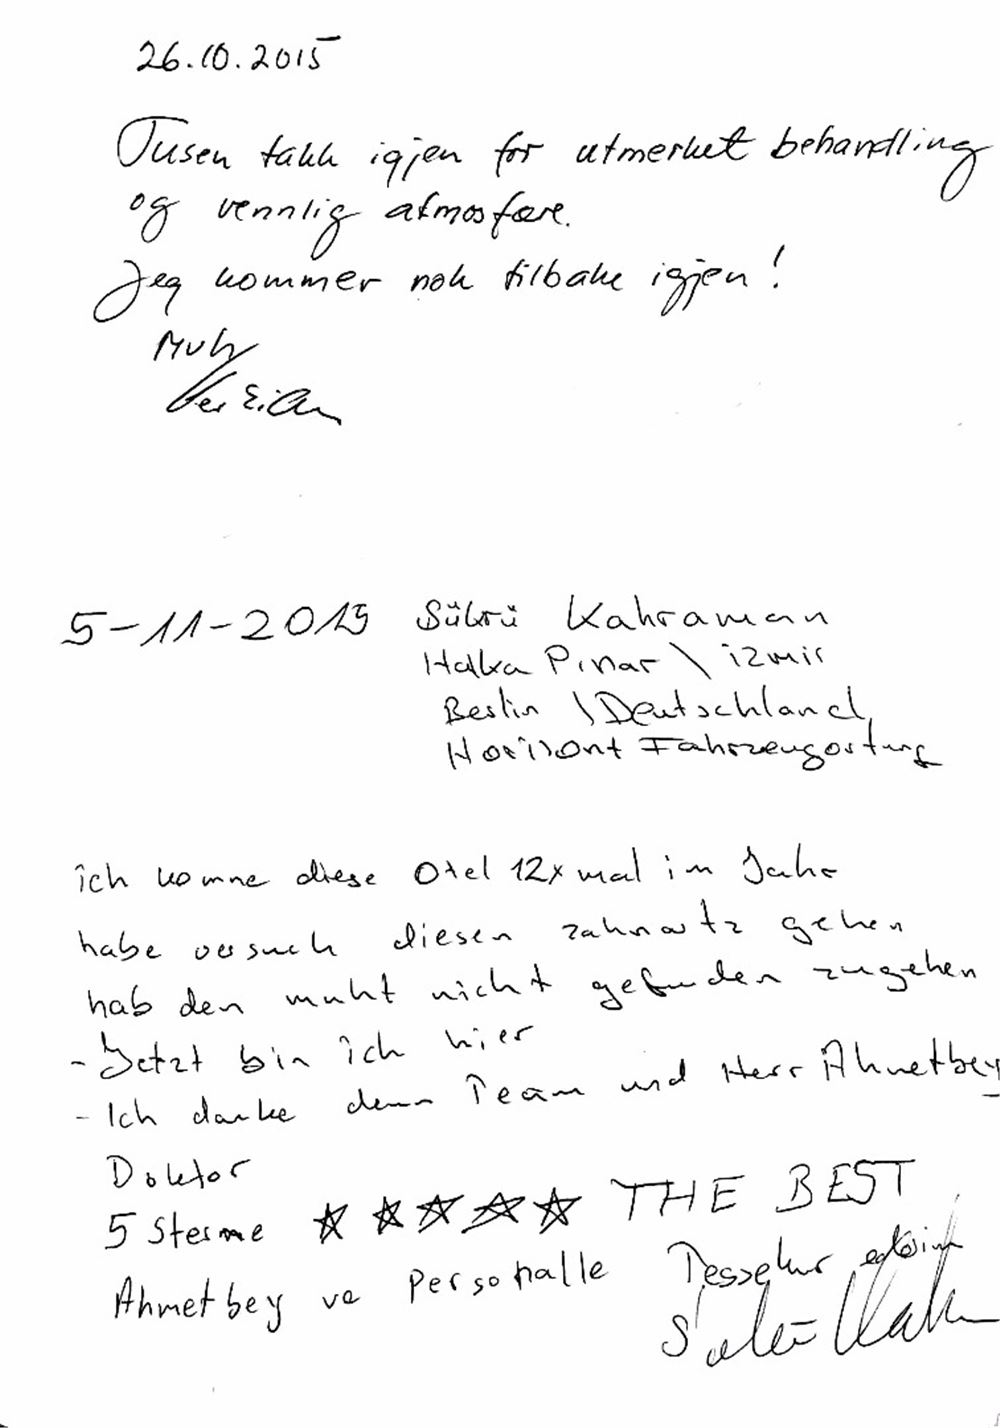 26.10.2015
Tusen takk igjen for utmerket behandling
og vennlig atmosfære.
Jeg kommer nok tilbake igjen!
5-11-2015 Sükrü Kahraman
Halka Pınar \ izmir
Berlin \ Deutschland
Horisont
ich komme diese Otel 12x mal im Jahr
habe versuch diesen zahnartz gehen
hab den muht nicht gefunden zugehen
- Jetzt bin ich hier
- Ich danke denn Team und Herr Ahmetbey
Doktor
5 Sterne THE BEST
Ahmetbey ve personalle Tessekur ederim